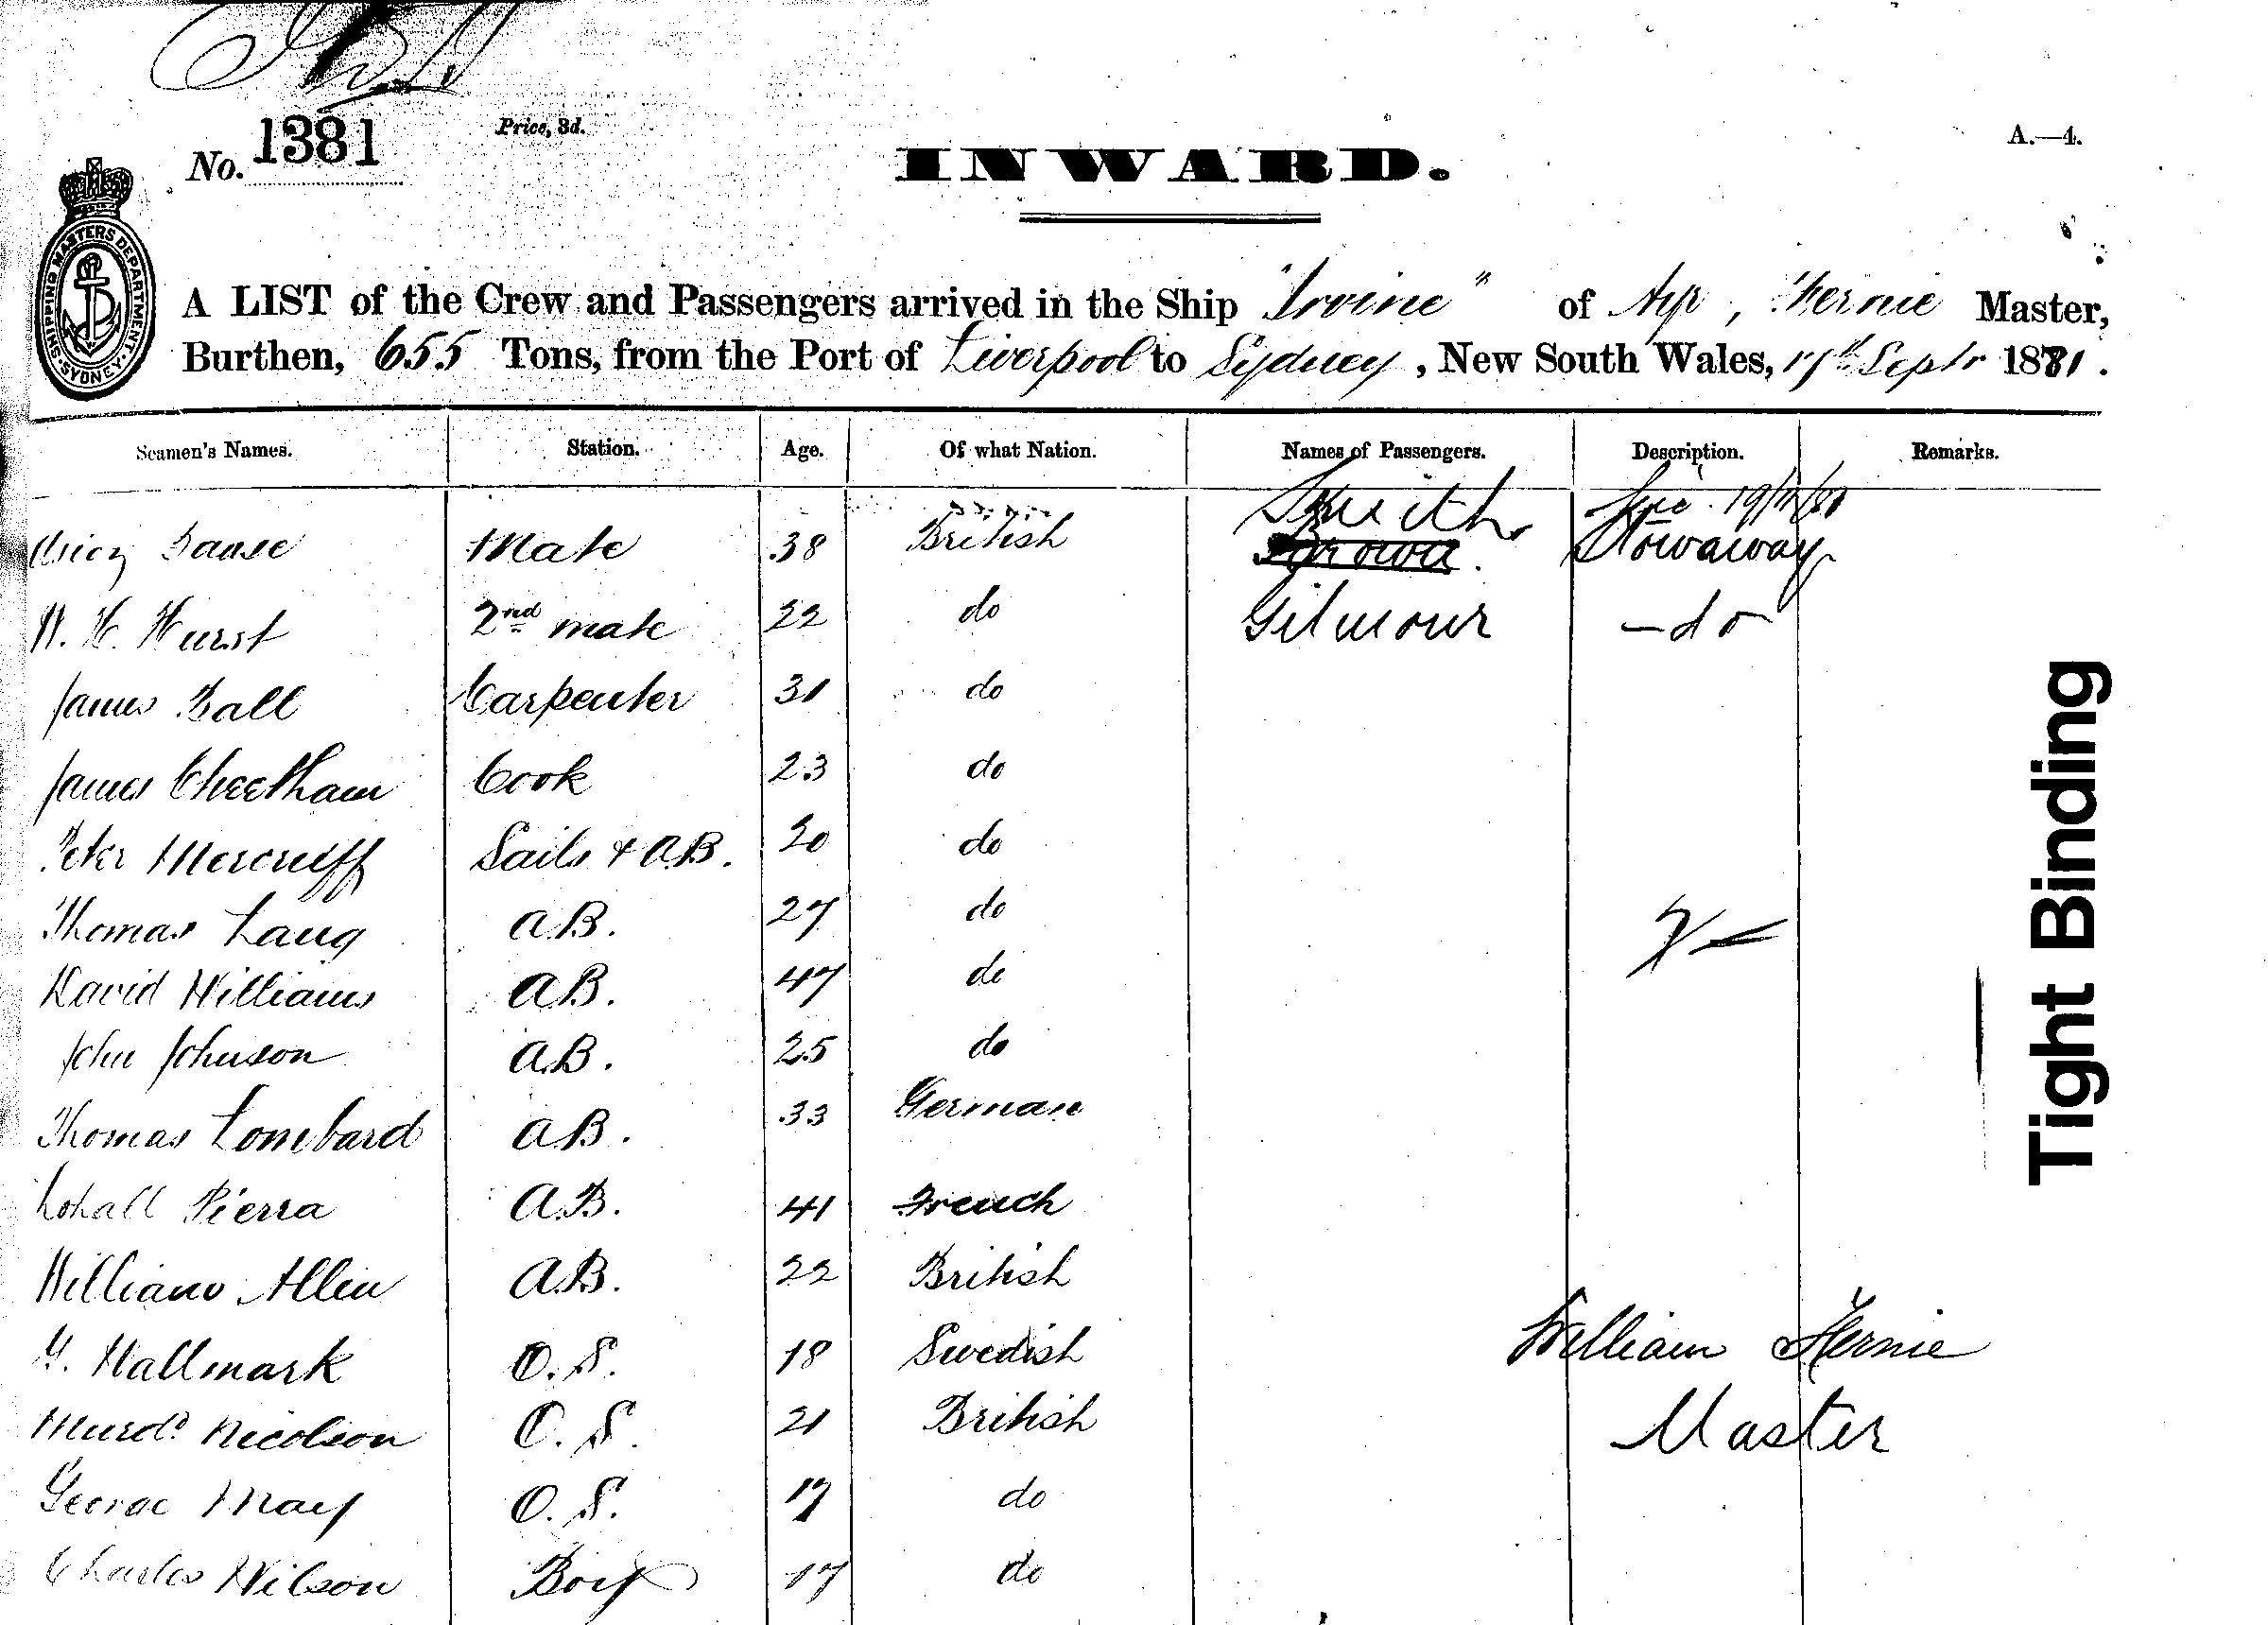 No. 1381
Price, 3d.
INWARD.
A.—4.
SHIPPING MASTERS DEPARTMENT. SYDNEY.
A LIST of the Crew and Passengers arrived in the Ship "Irvine" of Ayr, Fernie Master,
Burthen, 655 Tons, from the Port of Liverpool to Sydney, New South Wales, Septr 1881.
Seamen's Names. Station. Age. Of what Nation. Names of Passengers. Description. Remarks.
Mate 38 British Smith Stowaway
Brown.
W. H. Hurst 2nd mate 22 do Gilmour - do
James Ball Carpenter 31 do
James Cheetham Cook 23 do
Peter Sails & A.B. 30 do
Thomas Lang A.B. 27 do
David Williams A.B. 47 do
John Johnson A.B. 25 do
Thomas Lombard A.B. 33 German
Pierra A.B. 41 French
William Allen A.B. 22 British
Hallmark O.S. 18 Swedish
Murdo Nicolson O.S. 21 British
George May O.S. 19 do
Charles Wilson Boy 17 do
William Fernie
Master
Tight Binding